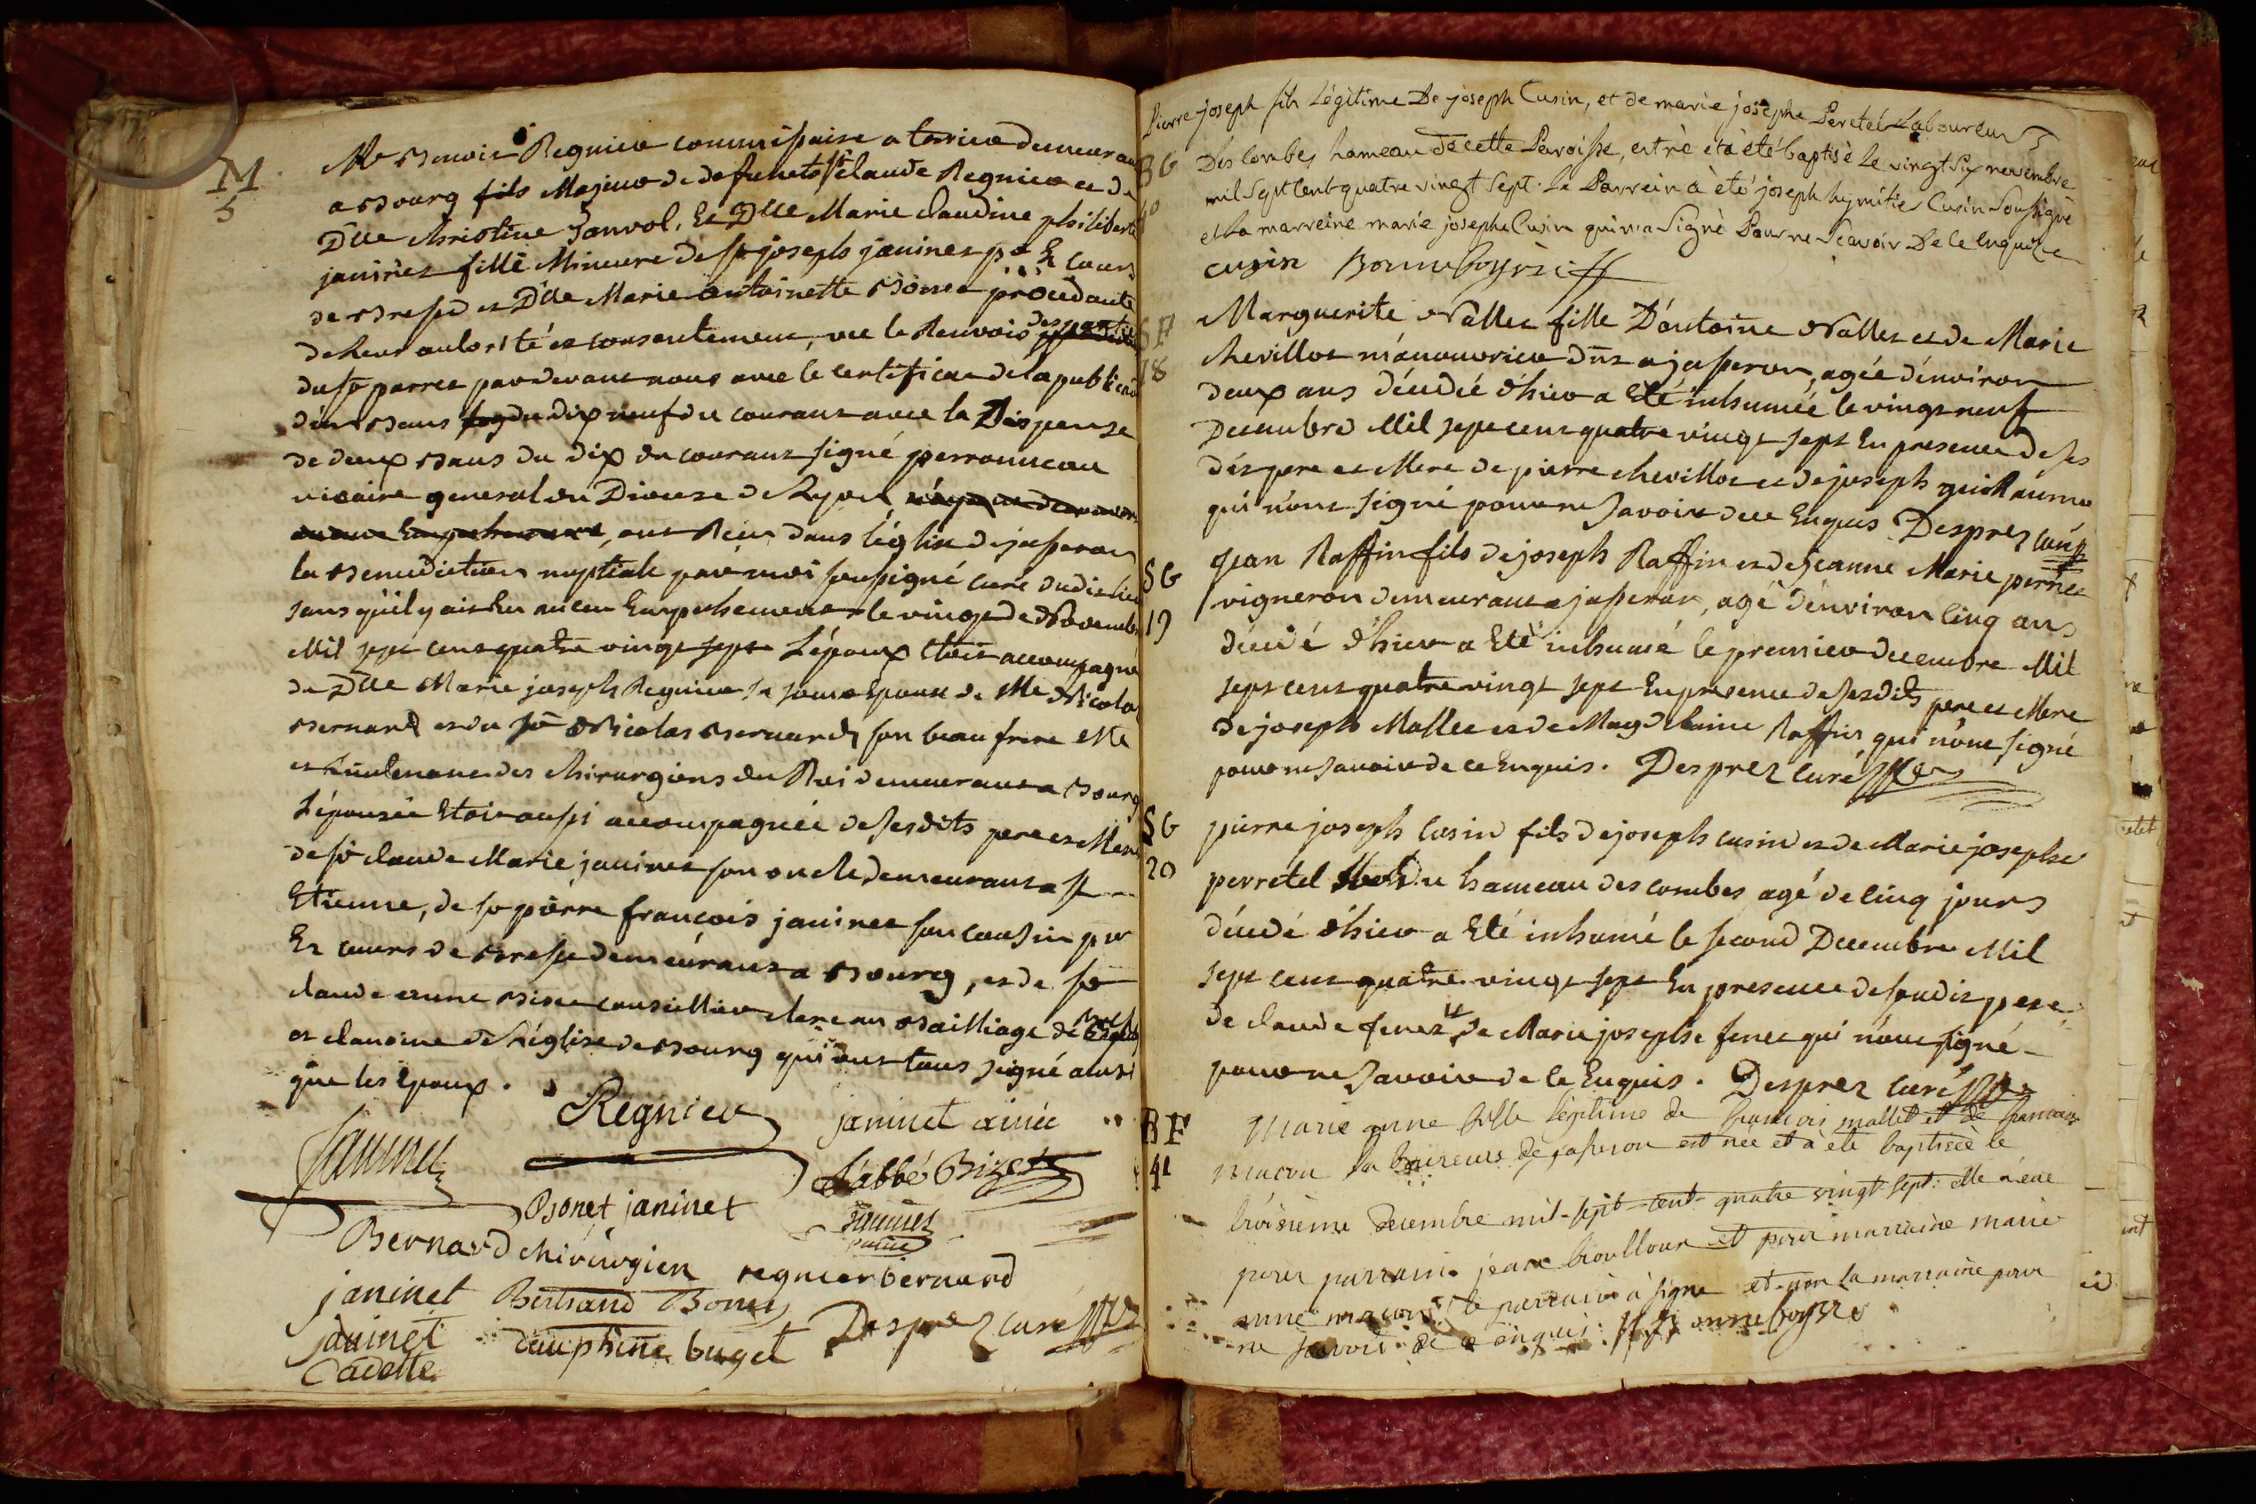 M
5
Mr Benoit Regnier commissaire a terrier demeurant
a Bourg fils Majeur de defunts Sr claude Regnier et de
Dlle christine Janvol, Et Dlle Marie claudine philiberte
janinet fille Mineure de Sr joseph janinet pr Er cours
de Bresse et Dlle Marie antoinette Bonet procedante
de leur autorité et consentement, vu le Renvois des parties
du Sr parret pardevant nous avec le certificat de la publicaon
d'un Bans du dix neuf du courant avec la Dispense
de deux Bans du dix du courant signé perronneau
vicaire general du Dioceze de Lyon
, ont Reçu dans l'église de jasseron
la Benediction nuptiale par moi soussigné curé dudit lieu
sans qu'il y ait Eu aucun Empechement le vingt de Novembre
Mil sept cent quatre vingt sept L'époux Etoit accompagné
de Dlle Marie joseph Regnier sa soeur Epouse de Me Nicolas
Bernard et du Sr Nicolas Bernard son beau frere Me
et Lieutenant des chirurgiens du Roi demeurant a Bourg
L'épousée Etoit aussi accompagnée de sesdits pere et Mere
de Sr claude Marie janinet son oncle demeurant a St
Etienne, de Sr pierre françois janinet son cousin pr
Er cours de Bresse demeurant a Bourg, et de Sr
claude anne Bizet conseiller clerc au Bailliage de Bresse
et chanoine de l'église de Bourg qui ont tous signé ainsi
que les Epoux.
Regnier janinet ainée
Janinet L'abbé Bizet
Bonet janinet Janinet
Bernard chirurgien regnier bernard
janinet Bertrand Bonet
janinet dauphine buget Desprez curé
Cadette
Pierre joseph fils Légitime De joseph Cusin, et de marie josephe Peretel Laboureurs
BG
40
Des Combes hameau de cette Paroisse, est né et à été baptisé Le vingt six novembre
mil Sept Cent quatre vingt Sept. Le Parrein à été joseph hymitier Cusin Soussigné
et La marreine marie josephe Cusin qui n'a Signé Pour ne Scavoir De Ce Enquise
cusin Bonneboysse
SF
18
Marguerite Vallet fille D'antoine Vallet et de Marie
chevillot manouvrier dnt a jasseron, agée d'environ
deux ans décédée d'hier a Eté inhumée le vingt neuf
Decembre Mil sept cent quatre vingt sept En presence de ses
dts pere et Mere de pierre chevillot et de joseph guillaume
qui n'ont signé pour ne savoir de ce Enquis Desprez curé
SG
19
Jean Raffin fils de joseph Raffin et de Jeanne Marie perret
vigneron demeurant a jasseron, agé d'environ cinq ans
décedé d'hier a Eté inhumé le premier decembre Mil
sept cent quatre vingt sept En presence de sesdits pere et Mere
de joseph Mallet et de Magdelaine Raffin qui n'ont signé
pour ne savoir de ce Enquis. Desprez curé
SG
20
pierre joseph cusin fils de joseph cusin et de Marie josephe
perretel du hameau des combes agé de cinq jours
décedé d'hier a Eté inhumé le second Decembre Mil
sept cent quatre vingt sept En presence de sondit pere
de claude feret et de Marie josephe feret qui n'ont signé
pour ne savoir de ce Enquis. Desprez curé
BF
41
Marie anne fille légitime de françois mallet et de françoise
macon laboureurs de jasseron est née et à été baptisée le
troisieme decembre mil-sept-cent-quatre vingt sept: elle à eue
pour parrain jean et pour marraine marie
anne macon le parrain à signé et non la marraine pour
ne savoir de ce enquis Bonneboysse